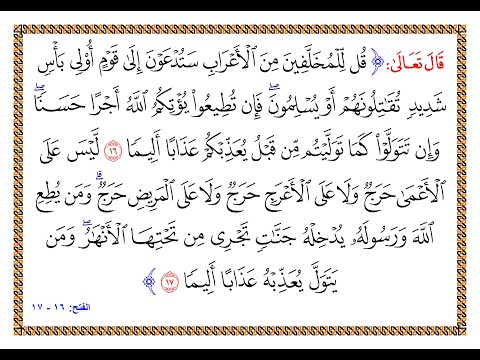 قَالَ تَعَالَىٰ: ﴿ قُل لِّلْمُخَلَّفِينَ مِنَ ٱلْأَعْرَابِ سَتُدْعَوْنَ إِلَىٰ قَوْمٍ أُو۟لِى بَأْسٍ
شَدِيدٍ تُقَـٰتِلُونَهُمْ أَوْ يُسْلِمُونَ ۖ فَإِن تُطِيعُوا۟ يُؤْتِكُمُ ٱللَّهُ أَجْرًا حَسَنًا ۖ
وَإِن تَتَوَلَّوْا۟ كَمَا تَوَلَّيْتُم مِّن قَبْلُ يُعَذِّبْكُمْ عَذَابًا أَلِيمًا ١٦ لَّيْسَ عَلَى
ٱلْأَعْمَىٰ حَرَجٌ وَلَا عَلَى ٱلْأَعْرَجِ حَرَجٌ وَلَا عَلَى ٱلْمَرِيضِ حَرَجٌ ۗ وَمَن يُطِعِ
ٱللَّهَ وَرَسُولَهُۥ يُدْخِلْهُ جَنَّـٰتٍ تَجْرِى مِن تَحْتِهَا ٱلْأَنْهَـٰرُ ۖ وَمَن
يَتَوَلَّ يُعَذِّبْهُ عَذَابًا أَلِيمًا ١٧ ﴾
الفتح: ١٦ - ١٧